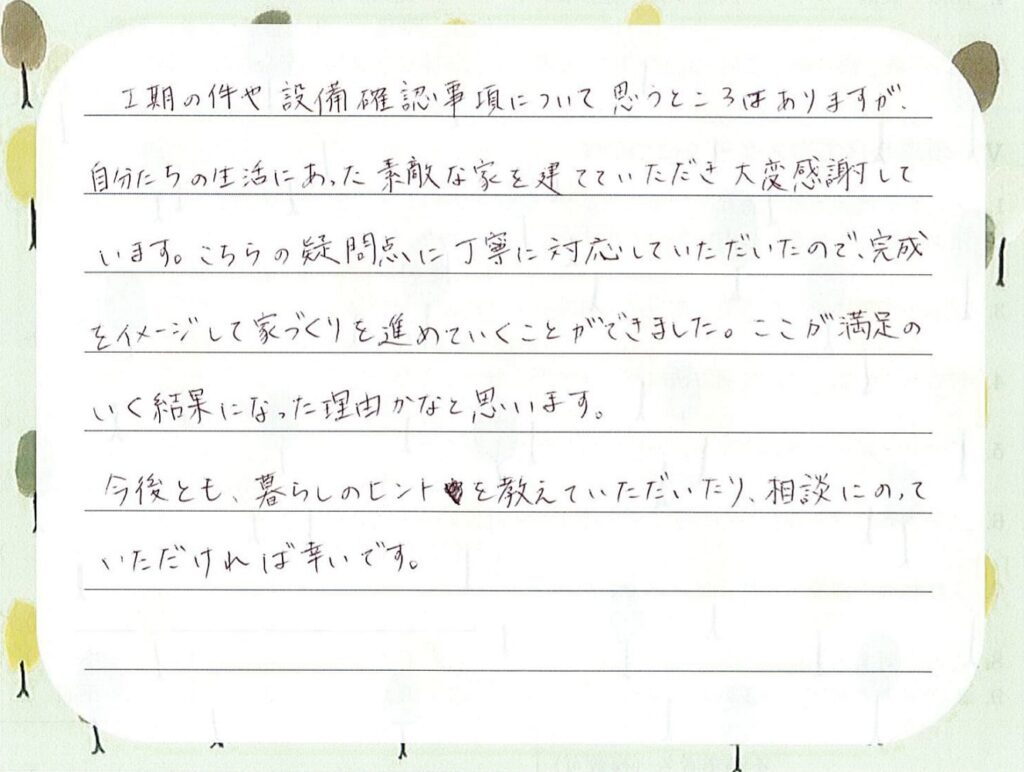 工期の件や設備確認事項について思うところはありますが、
自分たちの生活にあった素敵な家を建てていただき大変感謝して
います。こちらの疑問点に丁寧に対応していただいたので、完成
をイメージして家づくりを進めていくことができました。ここが満足の
いく結果になった理由かなと思います。
今後とも、暮らしのヒントを教えていただいたり、相談にのって
いただければ幸いです。